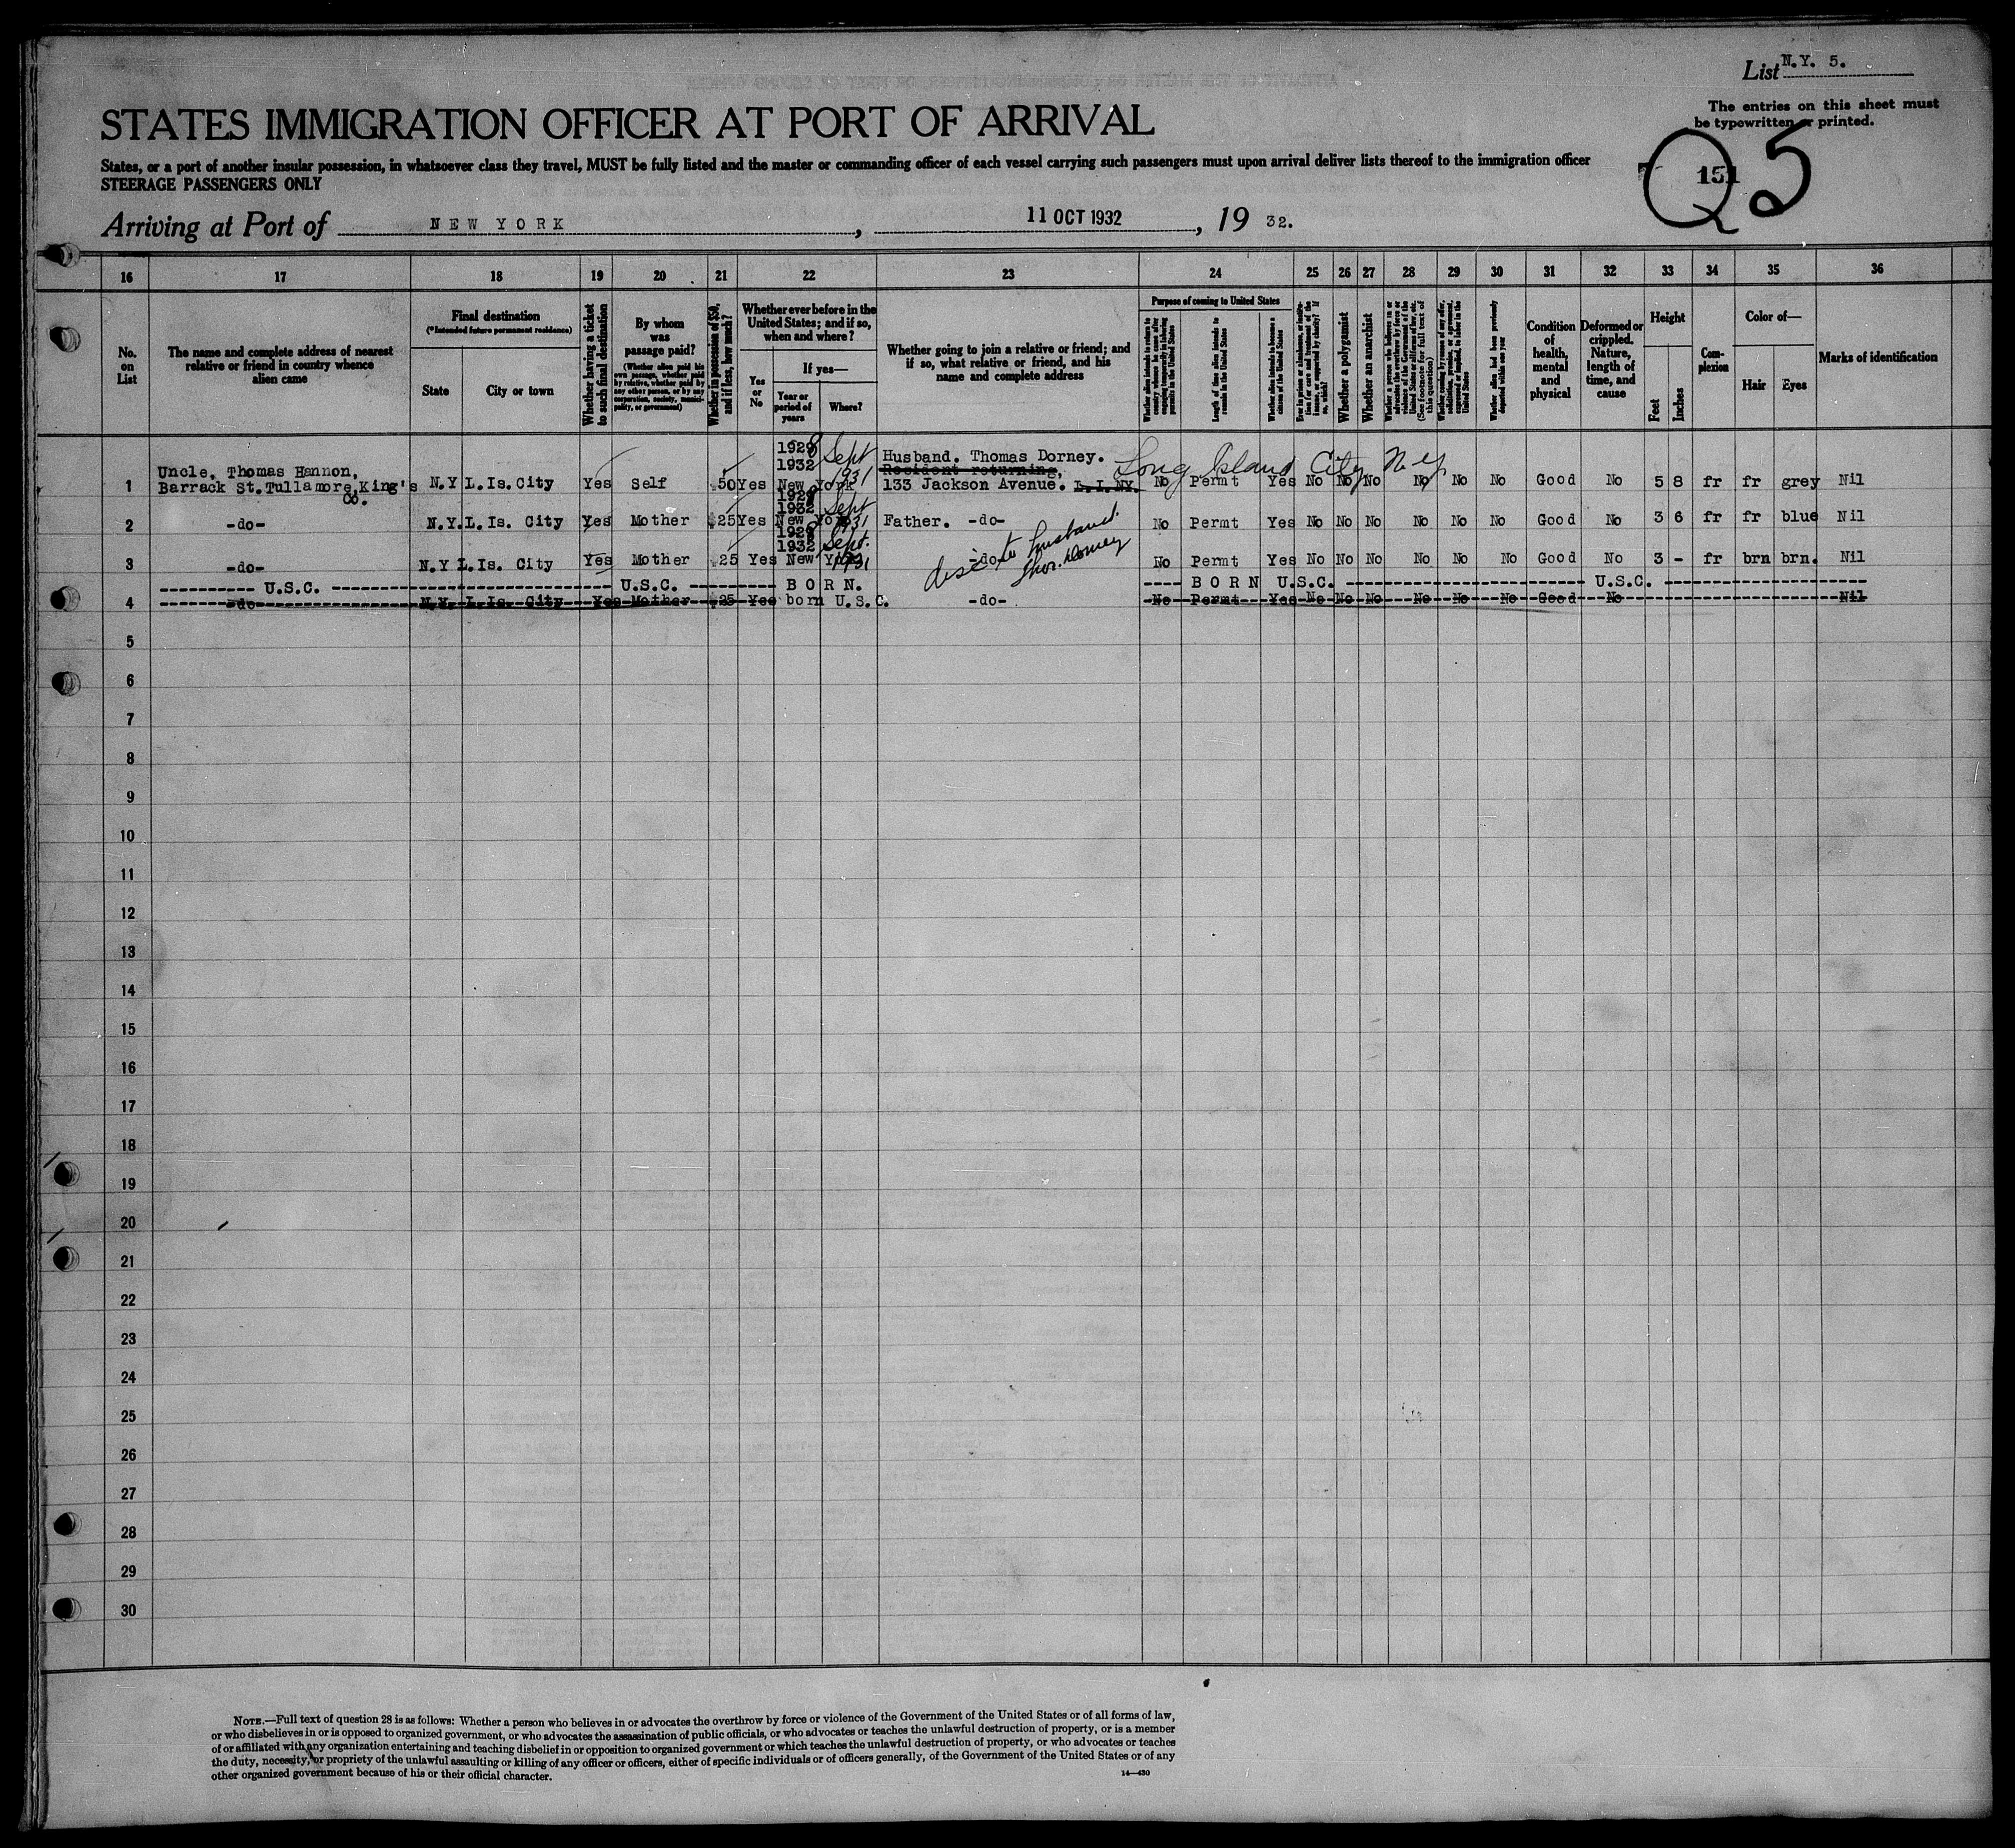 List N.Y. 5.
The entries on this sheet must
be typewritten or printed.
STATES IMMIGRATION OFFICER AT PORT OF ARRIVAL
States, or a port of another insular possession, in whatsoever class they travel, MUST be fully listed and the master or commanding officer of each vessel carrying such passengers must upon arrival deliver lists thereof to the immigration officer
STEERAGE PASSENGERS ONLY
151
Q5
Arriving at Port of NEW YORK, 11 OCT 1932, 19 32.
16 17 18 19 20 21 22 23 24 25 26 27 28 29 30 31 32 33 34 35 36
No. on List
The name and complete address of nearest
relative or friend in country whence
alien came
Final destination
(*Intended future permanent residence)
State
City or town
Whether having a ticket
to such final destination
By whom
was
passage paid?
(Whether alien paid his
own passage, whether paid
by relative, whether paid by
any other person, or by any
corporation, society, munici-
pality, or government)
Whether in possession of $50,
and if less, how much?
Whether ever before in the
United States; and if so,
when and where?
Yes
or
No
If yes—
Year or
period of
years
Where?
Whether going to join a relative or friend; and
if so, what relative or friend, and his
name and complete address
Purpose of coming to United States
Length of time alien intends to
remain in the United States
Whether alien intends to become a
citizen of the United States
Whether a polygamist
Whether an anarchist
(See footnote for full text of
this question)
Whether alien had been previously
deported within one year
Condition
of
health,
mental
and
physical
Deformed or
crippled.
Nature,
length of
time, and
cause
Height
Feet
Inches
Com-
plexion
Color of—
Hair
Eyes
Marks of identification
1928 Sept
1932 1931
Husband. Thomas Dorney.
Long Island City, N.Y.
Uncle, Thomas Hannon,
Resident returning,
1 Barrack St. Tullamore, King's Co. N.Y L.Is.City Yes Self 50 Yes New York 133 Jackson Avenue. L.I.NY. No Permt Yes No No No No No No Good No 5 8 fr fr grey Nil
1928 Sept
1932 1931
2 -do- N.Y. L.Is. City Yes Mother $25 Yes New York Father. -do- No Permt Yes No No No No No No Good No 3 6 fr fr blue Nil
1928 Sept.
1932 1931
3 -do- N.Y L.Is. City Yes Mother 25 Yes New York -do- No Permt Yes No No No No No No Good No 3 - fr brn brn. Nil
to husband
Thos. Dorney
U.S.C. U.S.C. BORN. BORN U.S.C. U.S.C.
4 -do- N.Y. L.Is. City Yes Mother $25 Yes born U.S.C. -do- No Permt Yes No No No No No No Good No Nil
5
6
7
8
9
10
11
12
13
14
15
16
17
18
19
20
21
22
23
24
25
26
27
28
29
30
NOTE.—Full text of question 28 is as follows: Whether a person who believes in or advocates the overthrow by force or violence of the Government of the United States or of all forms of law,
or who disbelieves in or is opposed to organized government, or who advocates the assassination of public officials, or who advocates or teaches the unlawful destruction of property, or is a member
of or affiliated with any organization entertaining and teaching disbelief in or opposition to organized government or which teaches the unlawful destruction of property, or who advocates or teaches
the duty, necessity, or propriety of the unlawful assaulting or killing of any officer or officers, either of specific individuals or of officers generally, of the Government of the United States or of any
other organized government because of his or their official character.
14—430